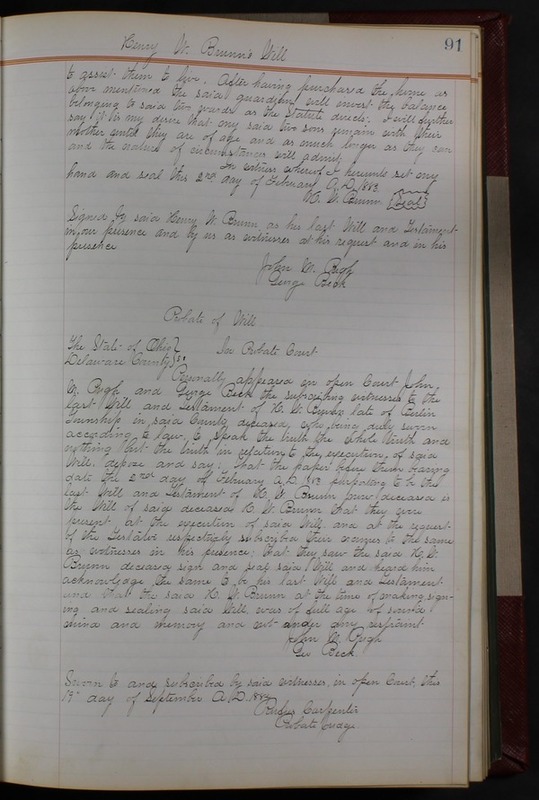 Henry W. Brunn's Will
91
to assist them to live. After having purchased the home as
above mentioned the said guardian will invest the balance
belonging to said two wards as the Statute directs. I will further
say it is my desire that my said two sons remain with their
mother until they are of age and as much longer as they can
and the nature of circumstances will admit.
In witness whereof I hereunto set my
hand and seal this 2nd day of February A.D. 1883
H. W. Brunn [Seal]
Signed by said Henry W. Brunn as his last Will and Testament
in our presence and by us as witnesses at his request and in his
presence
John M. Pugh
George Beck
Probate of Will
The State of Ohio }
Delaware County } ss. In Probate Court
Personally appeared in open Court John
M. Pugh and George Beck the subscribing witnesses to the
last Will and Testament of H. W. Brunn late of Berlin
Township in said County deceased, who being duly sworn
according to law, to speak the truth the whole truth and
nothing but the truth in relation to the execution of said
Will, depose and say: that the paper before them bearing
date the 2nd day of February A.D. 1883 purporting to be the
last Will and Testament of H. W. Brunn now deceased is
the Will of said deceased H. W. Brunn that they were
present at the execution of said Will and at the request
of the Testator respectively subscribed their names to the same
as witnesses in his presence; that they saw the said H. W.
Brunn deceased sign and seal said Will and heard him
acknowledge the same to be his last Will and Testament
and that the said H. W. Brunn at the time of making sign-
ing and sealing said Will, was of full age of sound
mind and memory and not under any restraint
John M. Pugh
Geo Beck
Sworn to and subscribed by said witnesses, in open Court, this
19th day of September A.D. 1883
Rufus Carpenter
Probate Judge.